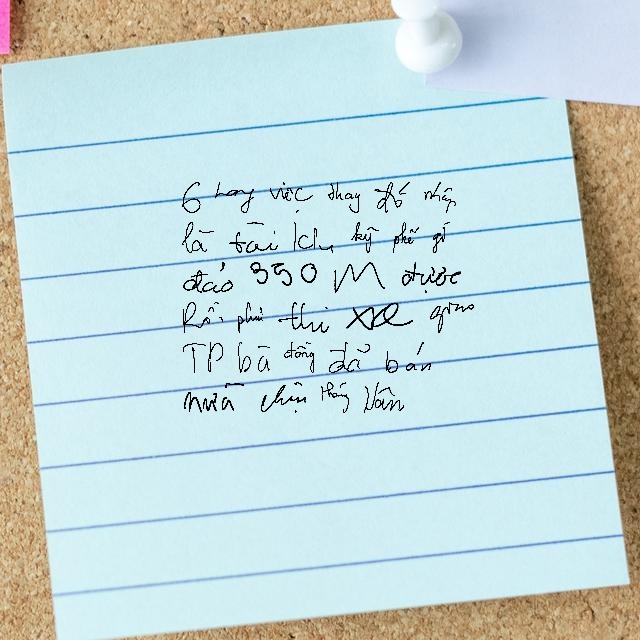 6 trong việc thay đó nhập
là tài kỹ phế gì
đảo 350 M được
Rồi phải thi xe giao
TP bà đồng đã bán
mưa chịu tháng Vân